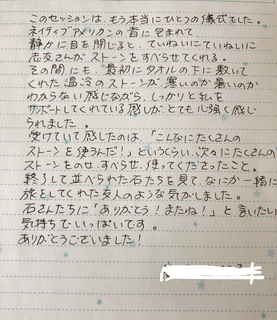 このセッションは、もう本当にひとつの儀式でした。
ネイティブアメリカンの音に包まれて、
静かに目を閉じると、ていねいにていねいに
志友さんがストーンをすべらせてくれる。
その間にも、最初にタオルの下に敷いて
くれた温冷のストーンが、寒いのか暑いのか
わからない感じながら、しっかりと私を
サポートしてくれている感じが、とても心強く感じ
られました。
受けていて感じたのは、「こんなにたくさんの
ストーンを使うんだ!」というくらい、次々にたくさんの
ストーンをのせ、すべらせ、使ってくださったこと。
終了して並べられた石たちを見て、なにか一緒に
旅をしてくれた友人のような気がしました。
石さんたちに「ありがとう!またね!」と言いたい
気持ちでいっぱいです。
ありがとうございました!